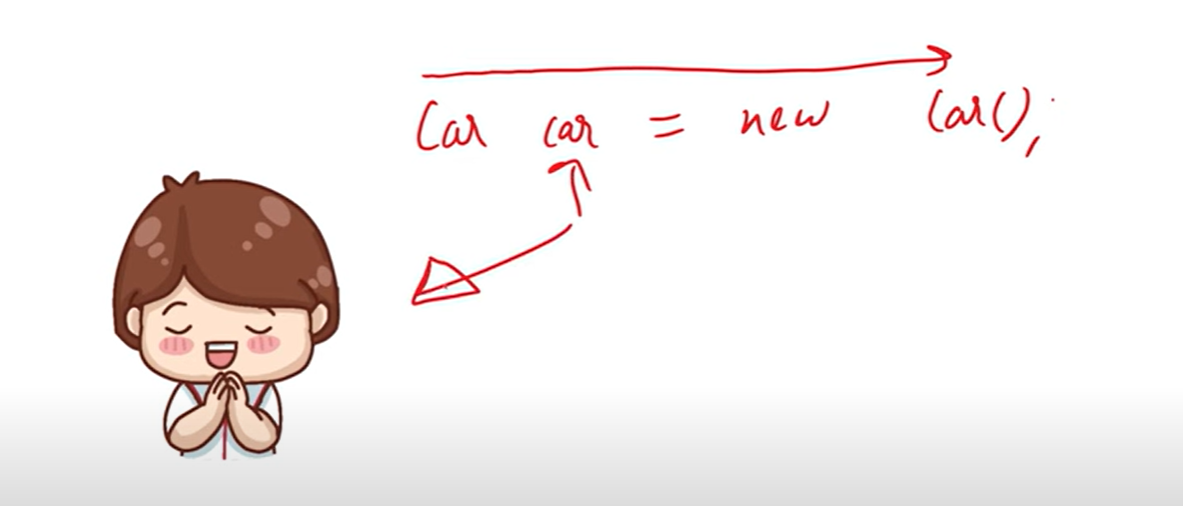 Car car = new Car();